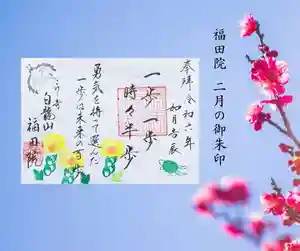 福田院 二月の御朱印
奉拝 令和六年
如月吉辰
一歩一歩
時々半歩
勇気を持って選んだ
一歩は未来の百歩
白龍山
福田院